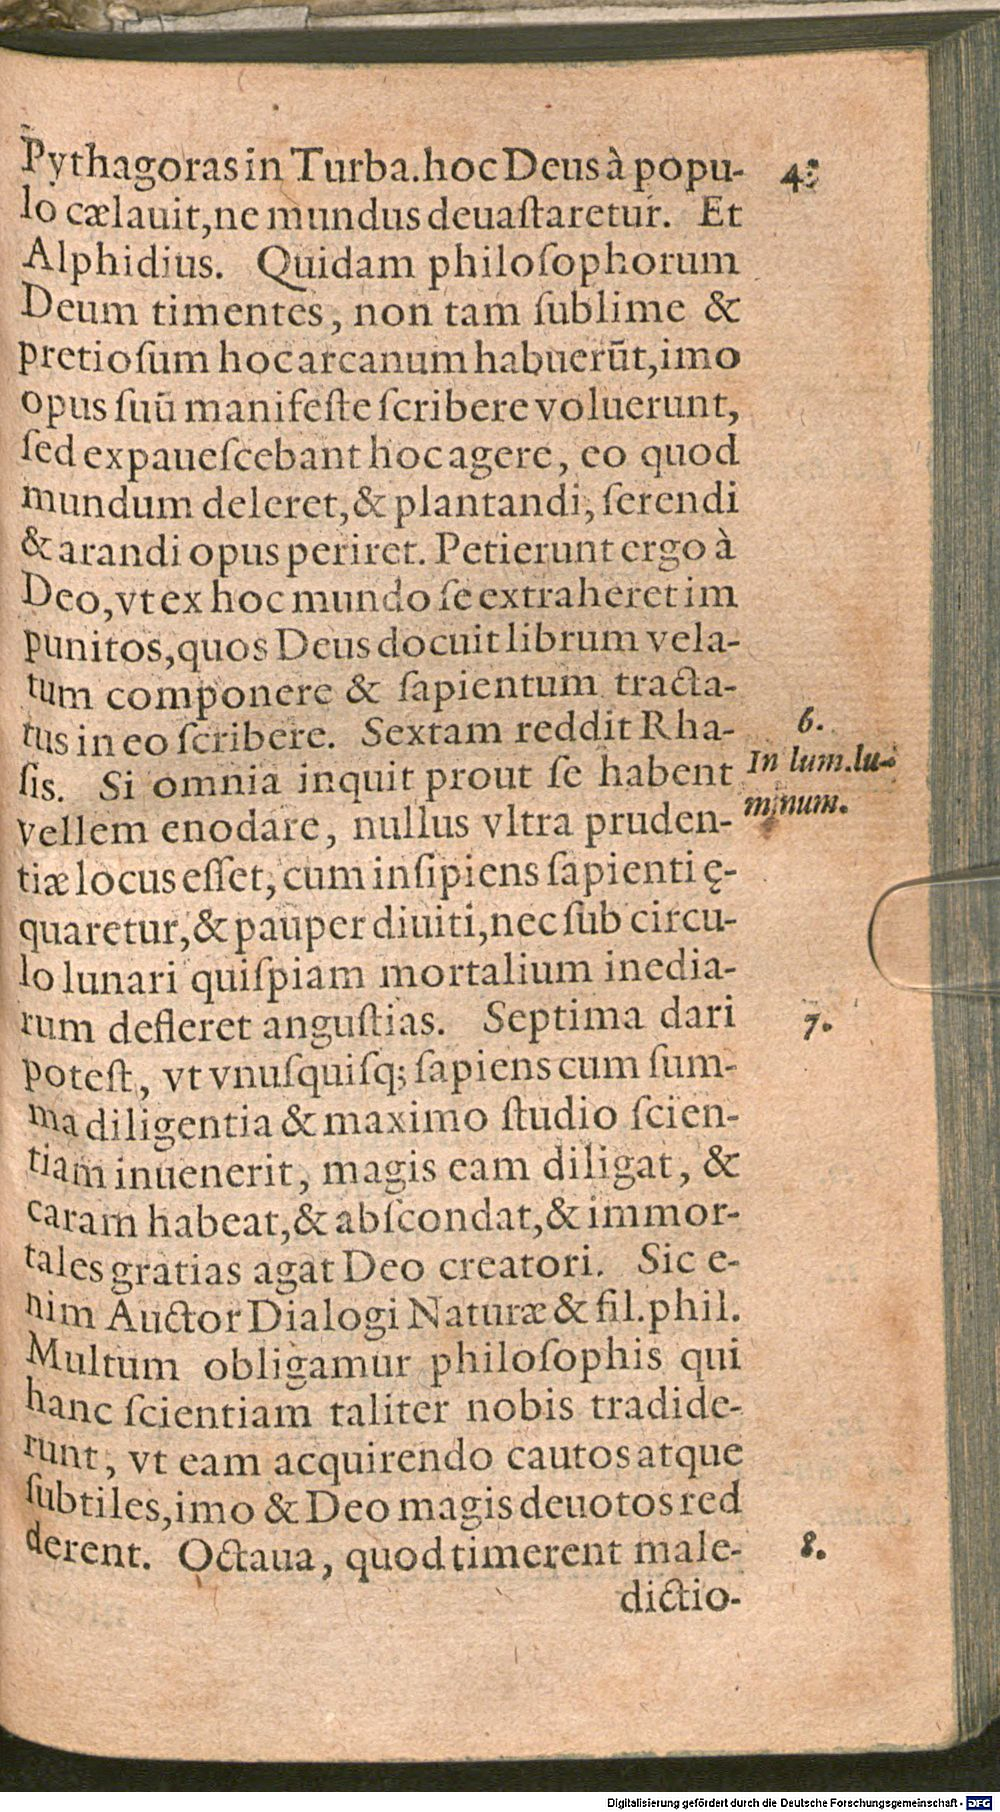 Pythagoras in Turba. hoc Deus à popu-
lo cælauit, ne mundus deuaſtaretur. Et
Alphidius. Quidam philoſophorum
Deum timentes, non tam ſublime &
pretioſum hoc arcanum habuerũt, imo
opus ſuũ manifeſte ſcribere voluerunt,
ſed expaueſcebant hoc agere, eo quod
mundum deleret, & plantandi, ſerendi
& arandi opus periret. Petierunt ergo à
Deo, vt ex hoc mundo ſe extraheret im
punitos, quos Deus docuit librum vela-
tum componere & ſapientum tracta-
tus in eo ſcribere. Sextam reddit Rha-
6.
ſis. Si omnia inquit prout ſe habent
In lum. lu-
vellem enodare, nullus vltra pruden-
minum.
tiæ locus eſſet, cum inſipiens ſapienti ę-
quaretur, & pauper diuiti, nec ſub circu-
lo lunari quiſpiam mortalium inedia-
rum defleret anguſtias. Septima dari
7.
poteſt, vt vnuſquiſq; ſapiens cum ſum-
ma diligentia & maximo ſtudio ſcien-
tiam inuenerit, magis eam diligat, &
caram habeat, & abſcondat, & immor-
tales gratias agat Deo creatori. Sic e-
nim Auctor Dialogi Naturæ & fil. phil.
Multum obligamur philoſophis qui
hanc ſcientiam taliter nobis tradide-
runt, vt eam acquirendo cautos atque
ſubtiles, imo & Deo magis deuotos red
derent. Octaua, quod timerent male-
8.
dictio-
Digitalisierung gefördert durch die Deutsche Forschungsgemeinschaft - DFG